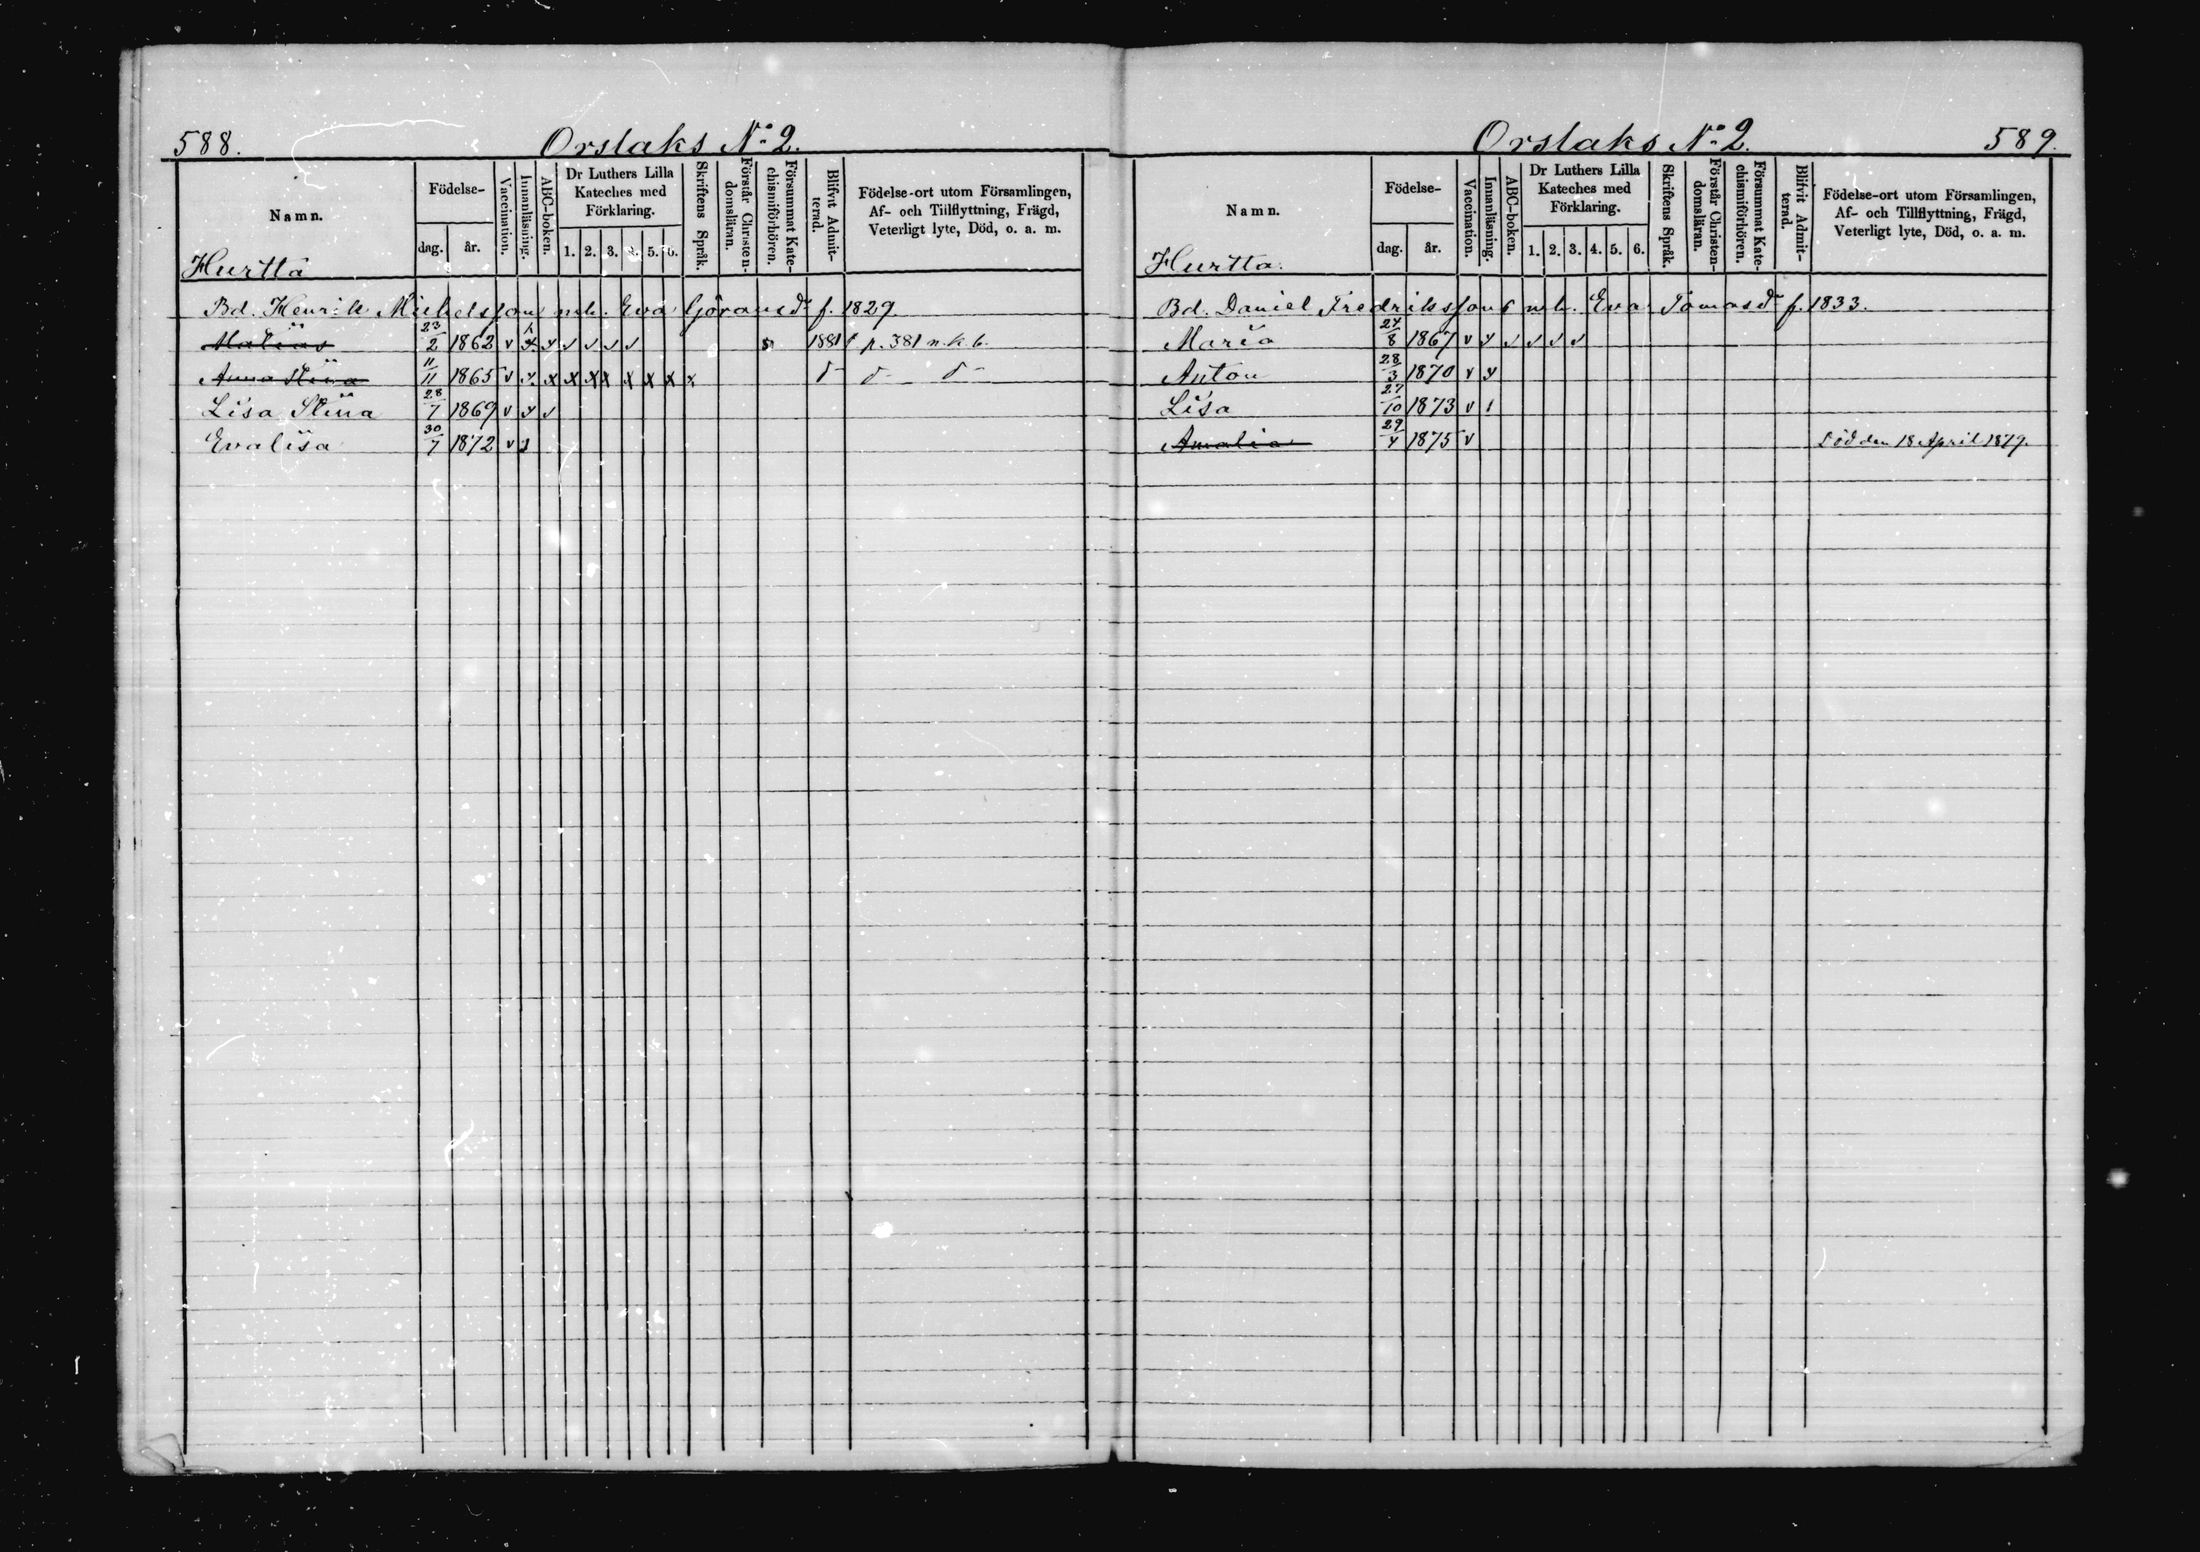 588. Orslaks No 2.
Namn. Födelse- dag. år. Vaccination. Innanläsning. ABC-boken. Dr Luthers Lilla Kateches med Förklaring. 1. 2. 3. 4. 5. 6. Skriftens Språk. Förstår Christendomsläran. Försummat Katechismiförhören. Blifvit Admitterad. Födelse-ort utom Församlingen, Af- och Tillflyttning, Frägd, Veterligt lyte, Död, o. a. m.
Hurtta
Bd. Henrik Mickelsson mh. Eva Göransdr f. 1829
Matias 23/2 1862 v x v v v v v 5 1881 p. 381 n. k. b.
Anna Stina 11/11 1865 v x x x x x x x x x d- d- d-
Lisa Stina 28/7 1869 v x v
Evalisa 30/7 1872 v 1
Orslaks No 2. 589.
Namn. Födelse- dag. år. Vaccination. Innanläsning. ABC-boken. Dr Luthers Lilla Kateches med Förklaring. 1. 2. 3. 4. 5. 6. Skriftens Språk. Förstår Christendomsläran. Försummat Katechismiförhören. Blifvit Admitterad. Födelse-ort utom Församlingen, Af- och Tillflyttning, Frägd, Veterligt lyte, Död, o. a. m.
Hurtta.
Bd. Daniel Fredriksson mh. Eva Tomasdr f. 1833.
Maria 24/8 1867 v x v v v v
Anton 28/3 1870 v x
Lisa 27/10 1873 v 1
Amalia 29/4 1875 v Död den 18 April 1879.